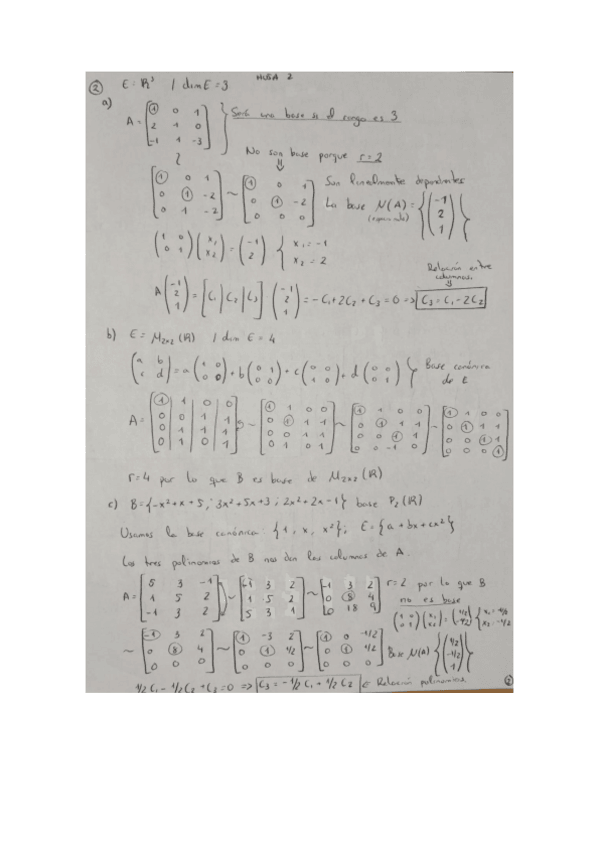 HOJA 2
② E = R³ / dim E = 3
a)
A = [① 0 1; 2 1 0; -1 1 -3] } Será una base si el rango es 3
No son base porque r=2
[① 0 1; 0 ① -2; 0 1 -2] ~ [① 0 1; 0 ① -2; 0 0 0] Son linealmente dependientes
La base N(A) = {(-1; 2; 1)}
(1 0; 0 1)(x₁; x₂) = (-1; 2) { x₁ = -1
x₂ = 2
Relación entre columnas
A(-1; 2; 1) = [C₁ | C₂ | C₃](-1; 2; 1) = -C₁ + 2C₂ + C₃ = 0 => C₃ = C₁ - 2C₂
b) E = M₂ₓ₂(R) / dim E = 4
(a b; c d) = a(1 0; 0 0) + b(0 1; 0 0) + c(0 0; 1 0) + d(0 0; 0 1) } Base canónica de E
A = [① 1 0 0; 0 0 1 1; 0 0 0 1; 0 1 0 1] ~ [① 1 0 0; 0 ① 1 1; 0 0 1 1; 0 0 0 1] ~ [① 1 0 0; 0 ① 1 1; 0 0 ① 1; 0 0 -1 0] ~ [① 1 0 0; 0 ① 1 1; 0 0 ① 1; 0 0 0 ①]
r=4 por lo que B es base de M₂ₓ₂(R)
c) B = {-x²+x+5; 3x²+5x+3; 2x²+2x-1} base P₂(R)
Usamos la base canónica: {1, x, x²}; E = {a+bx+cx²}
Los tres polinomios de B nos dan las columnas de A.
A = [5 3 -1; 1 5 2; -1 3 2] ~ [-1 3 2; 1 5 2; 5 3 1] ~ [-1 3 2; 0 ⑧ 4; 0 18 9] r=2 por lo que B
no es base
(1 0; 0 1)(x₁; x₂) = (1/2; -1/2) { x₁ = -1/2
x₂ = -1/2
~ [-1 3 2; 0 ⑧ 4; 0 0 0] ~ [① -3 2; 0 ① 1/2; 0 0 0] ~ [① 0 -1/2; 0 ① 1/2; 0 0 0] Base N(A) {(1/2; -1/2; 1)}
1/2 C₁ - 1/2 C₂ + C₃ = 0 => C₃ = -1/2 C₁ + 1/2 C₂ ∈ Relación polinomios